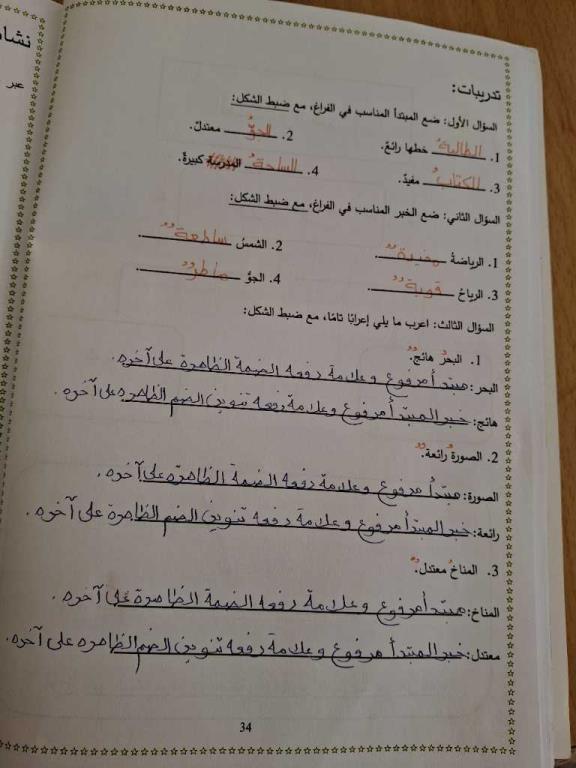 نشا
عبر
تدريبات:
السؤال الأول: ضع المبتدأ المناسب في الفراغ، مع ضبط الشكل:
1. الطالبةُ خطها رائع. 2. الجوُّ معتدل.
3. الكتابُ مفيدٌ. 4. الساحةُ كبيرةٌ.
السؤال الثاني: ضع الخبر المناسب في الفراغ، مع ضبط الشكل:
1. الرياضةُ مفيدةٌ. 2. الشمسُ ساطعةٌ.
3. الرياحُ قويةٌ. 4. الجوُّ ماطرٌ.
السؤال الثالث: اعرب ما يلي إعرابًا تامًا، مع ضبط الشكل:
1. البحرُ هائجٌ.
البحر: مبتدأ مرفوع وعلامة رفعه الضمة الظاهرة على آخره.
هائج: خبر المبتدأ مرفوع وعلامة رفعه تنوين الضم الظاهرة على آخره.
2. الصورةُ رائعةٌ.
الصورة: مبتدأ مرفوع وعلامة رفعه الضمة الظاهرة على آخره.
رائعة: خبر المبتدأ مرفوع وعلامة رفعه تنوين الضم الظاهرة على آخره.
3. المناخُ معتدلٌ.
المناخ: مبتدأ مرفوع وعلامة رفعه الضمة الظاهرة على آخره.
معتدل: خبر المبتدأ مرفوع وعلامة رفعه تنوين الضم الظاهره على آخره.
34